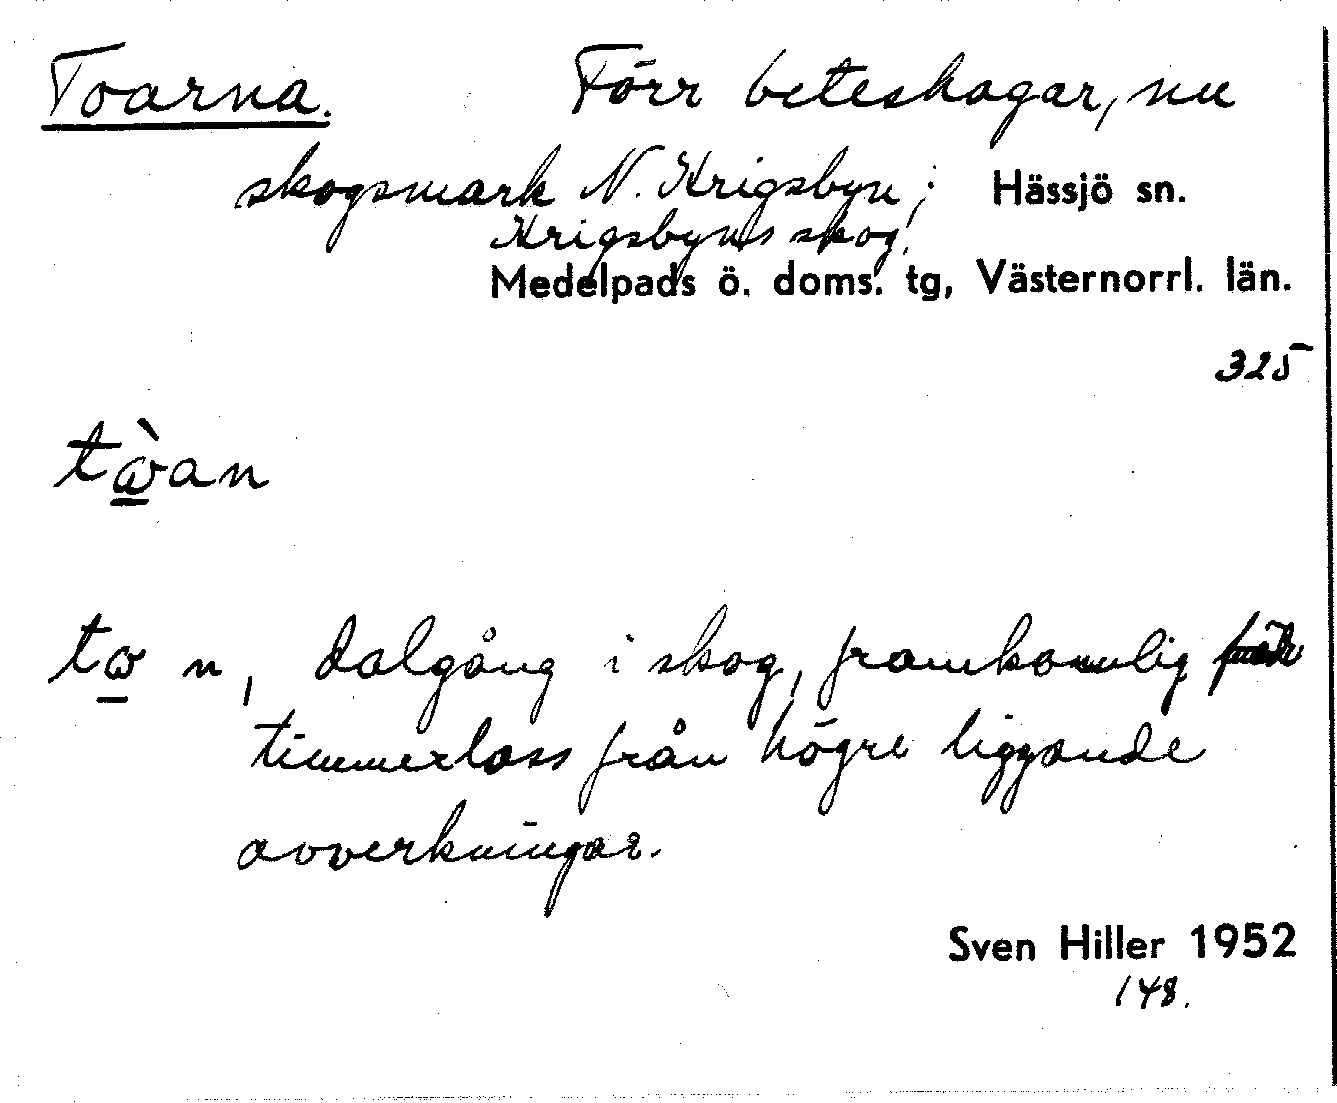 Toarna. Förr beteskogar, nu
skogsmark N. Krigsbyn; Hässjö sn.
Krigsbyns skog.
Medelpads ö. doms. tg, Västernorrl. län.
325
tὼ̲an
tω̲ n, dalgång i skog, framkomlig för
timmerlass från högre liggande
avverkningar.
Sven Hiller 1952
148.